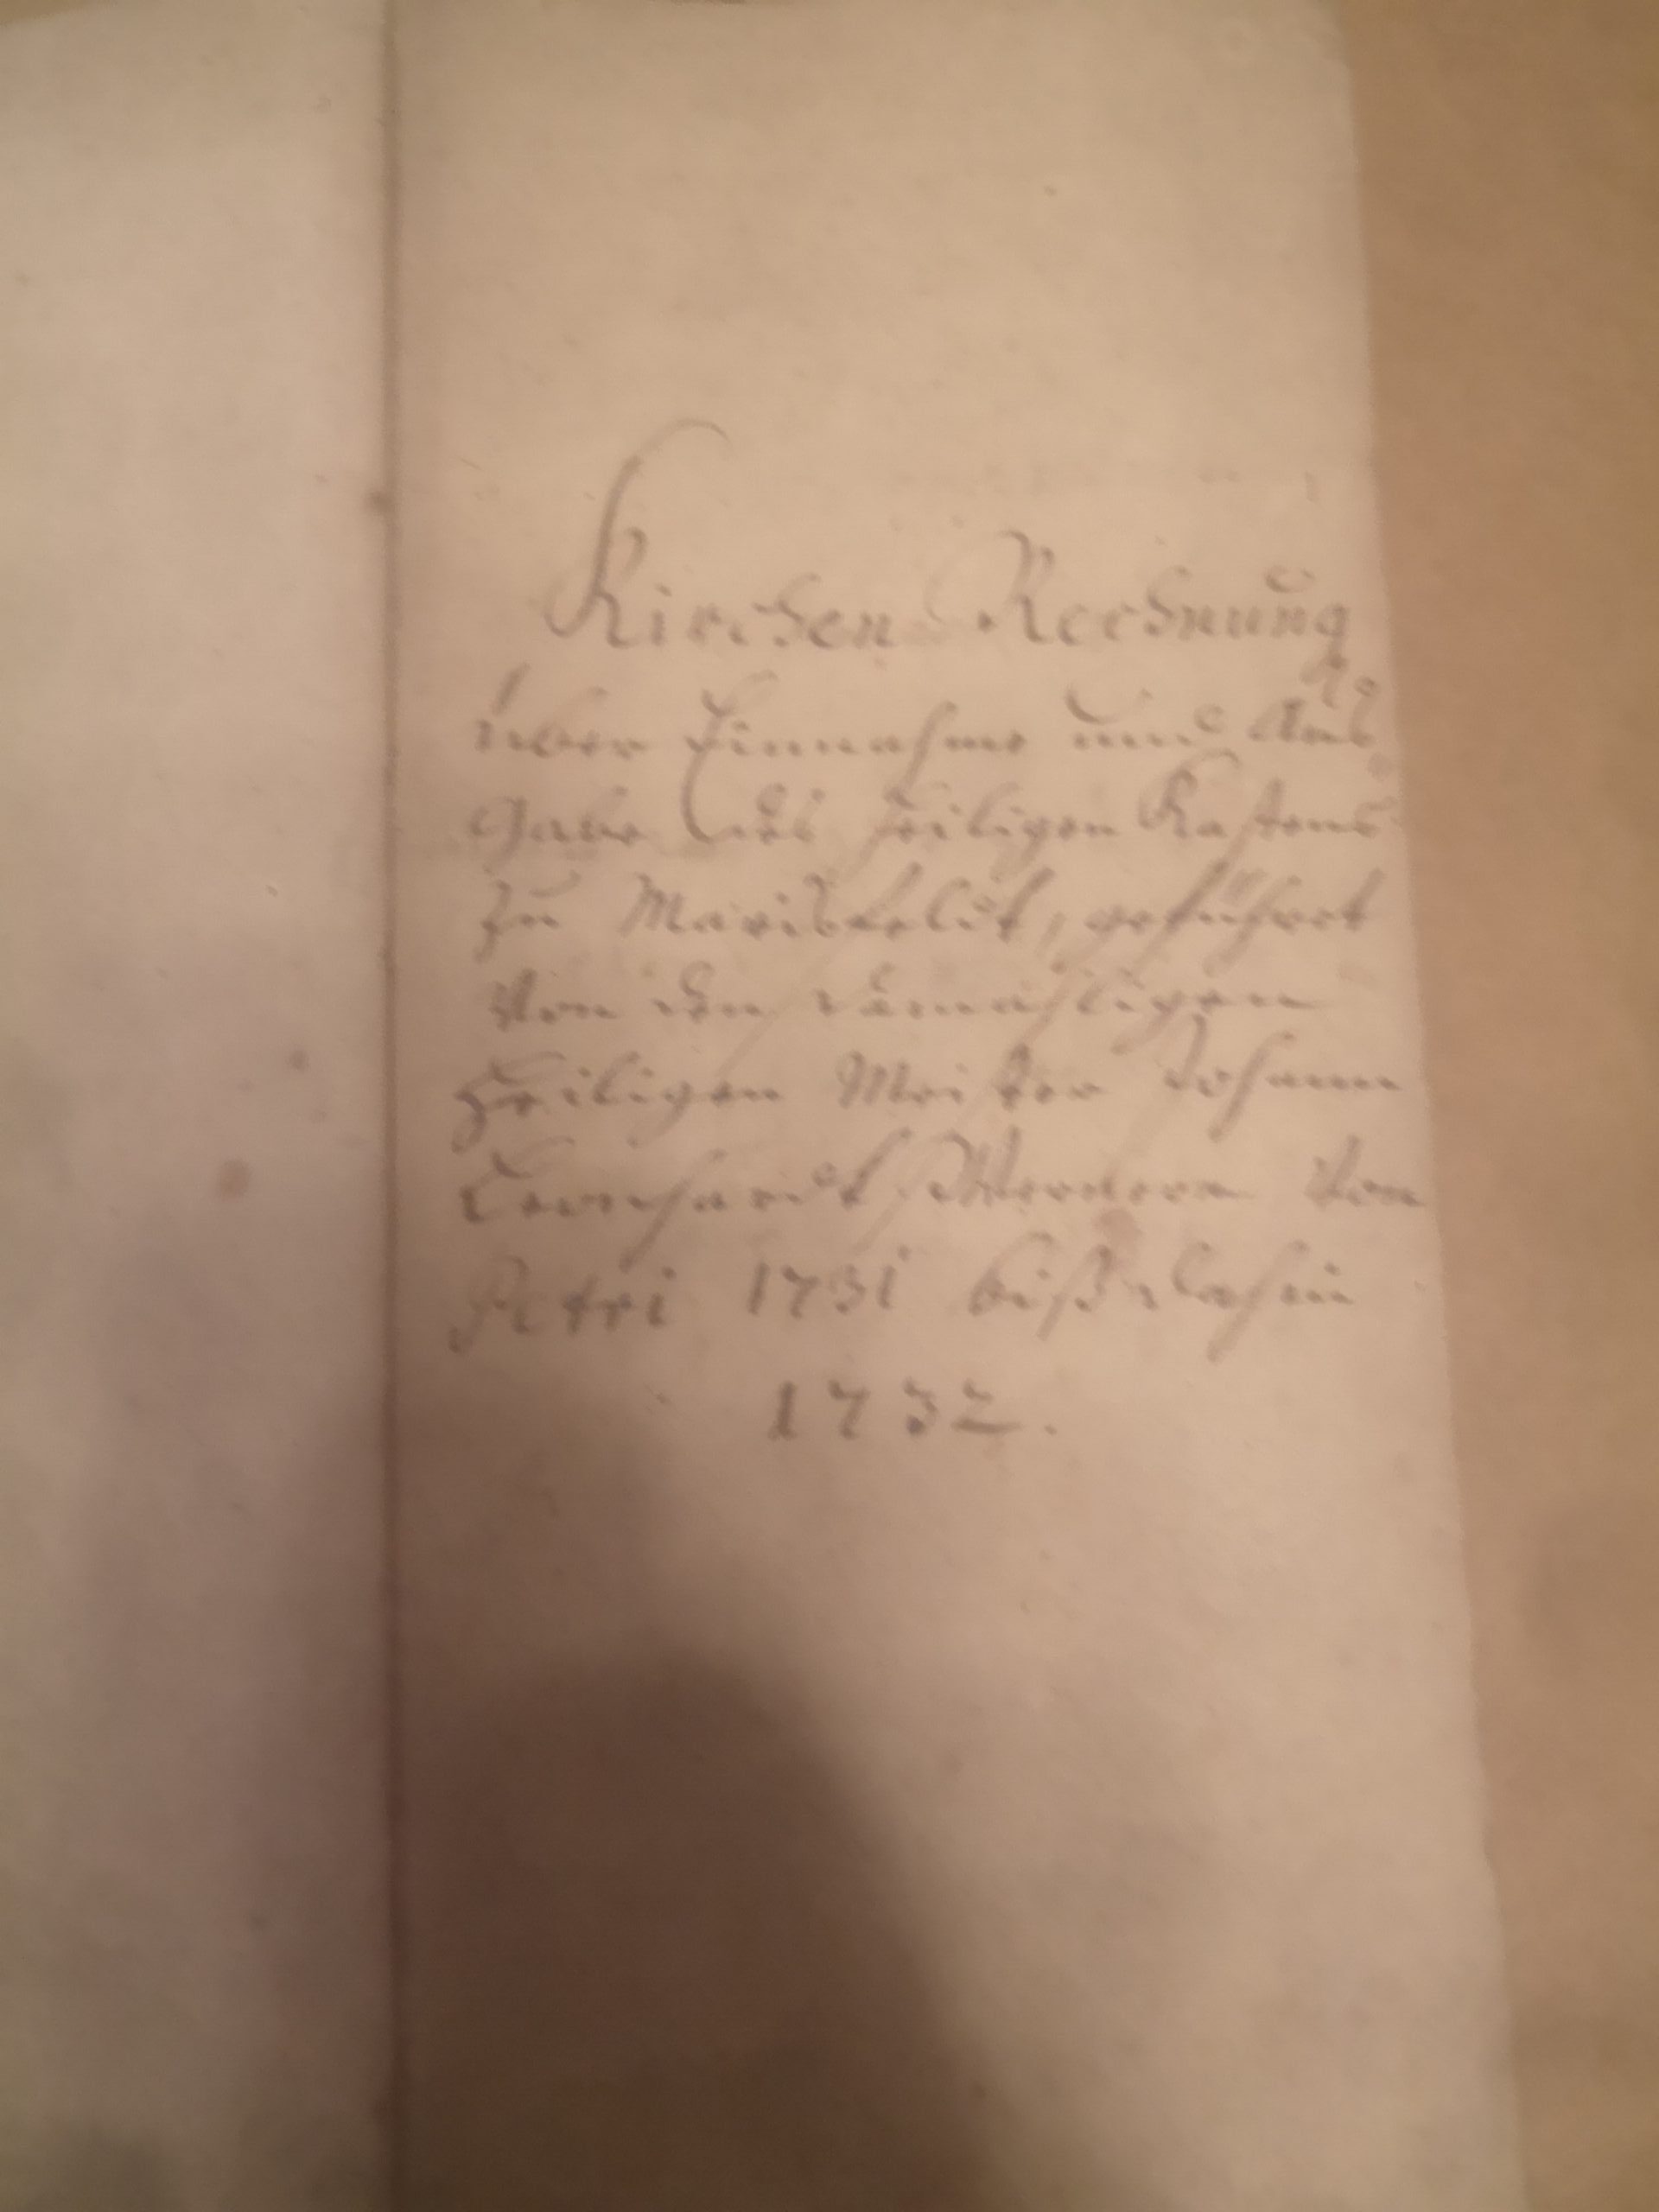 Kirchen Rechnung
über Einnahme und Aus
gabe des Heiligen Kastens
zu, geführet
von dem damahligen
Heiligen Meister Johann
Leonhardt von
Petri 1731 biß dahin
1732.